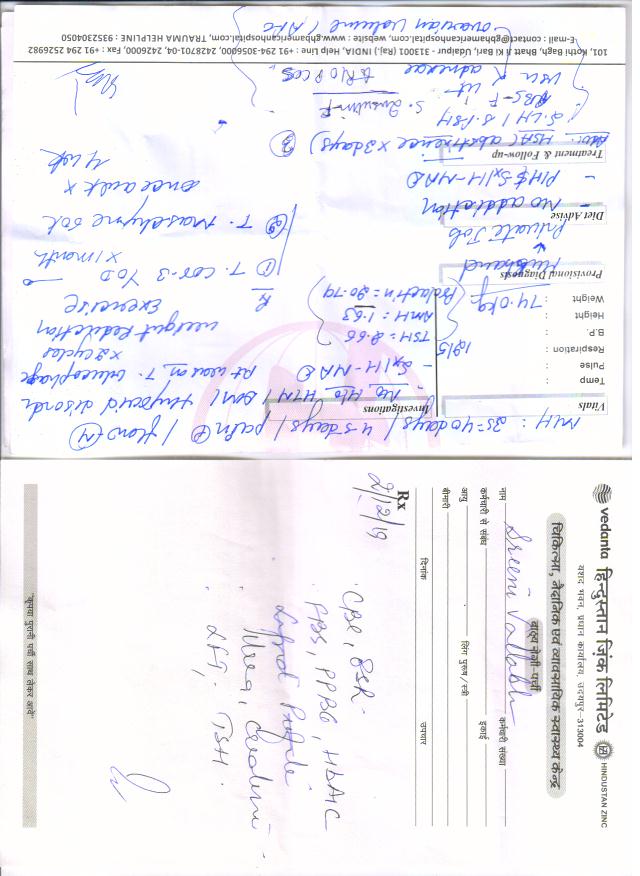 M/H: 35-40 days / 4-5 days / pain (+) / flow (N)
Vitals
Temp :
Pulse :
Respiration :
B.P. :
Height :
Weight : 74.0 kg
125
Investigations
No H/O HTN / DM / thyroid disord
- Sx/H - NAD
TSH = 2.66
AMH = 1.53
Prolactin = 20.79
At wean T. Glucophage
x 2 cycles
weight Reduction
Exercise
Rx
① T. COQ-3 1 OD
x 1 month
② T.
once a wk x
4 wk
Provisional Diagnosis
Husband
Private Job
Diet Advise
- No addiction
- PH & Sx/H - NAD
Treatment & Follow-up
Adv: HSA (abstinence x 3 days)
S. LH / S. FSH
RBS - F
S. Insulin - F
USG
ut
& adnexae
to R/O PCOS
- ovarian volume / AFC
101, Kothi Bagh, Bhatt Ji Ki Bari, Udaipur - 313001 (Raj.) INDIA, Help Line : +91 294-3056000, 2428701-04/10, 2426000, Fax : +91 294 2526982
E-mail : contact@gbhamericanhospital.com, website : www.gbhamericanhospital.com, TRAUMA HELPLINE : 9352304050
vedanta हिन्दुस्तान ज़िंक लिमिटेड HINDUSTAN ZINC
यशद भवन, प्रधान कार्यालय, उदयपुर-313004
चिकित्सा, नैदानिक एवं व्यावसायिक स्वास्थ्य केन्द्र
बाह्य रोगी-पर्ची
नाम Sreeni Vallabh कर्मचारी संख्या
कर्मचारी से संबंध इकाई
आयु लिंग पुरूष/स्त्री
बीमारी
दिनांक उपचार
Rx
2/12/19
CBC, ESR
FBS, PPBG, HbA1C
Lipid Profile
Urea, Creatinine
LFT, TSH
"कृपया पुरानी पर्ची साथ लेकर आवें"